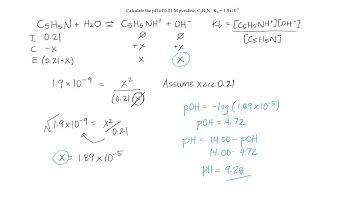 Calculate the pH of 0.21 M pyridine, C₅H₅N. K_b = 1.9x10⁻⁹
C₅H₅N + H₂O ⇌ C₅H₅NH⁺ + OH⁻
Kb = [C₅H₅NH⁺][OH⁻] / [C₅H₅N]
I 0.21 Ø Ø
C -x +x +x
E (0.21-x) x x
1.9x10⁻⁹ = x² / (0.21-x) Assume x<<<0.21
√1.9x10⁻⁹ = x² / 0.21
x = 1.89x10⁻⁵
pOH = -log(1.89x10⁻⁵)
pOH = 4.72
pH = 14.00 - pOH
14.00 - 4.72
pH = 9.28